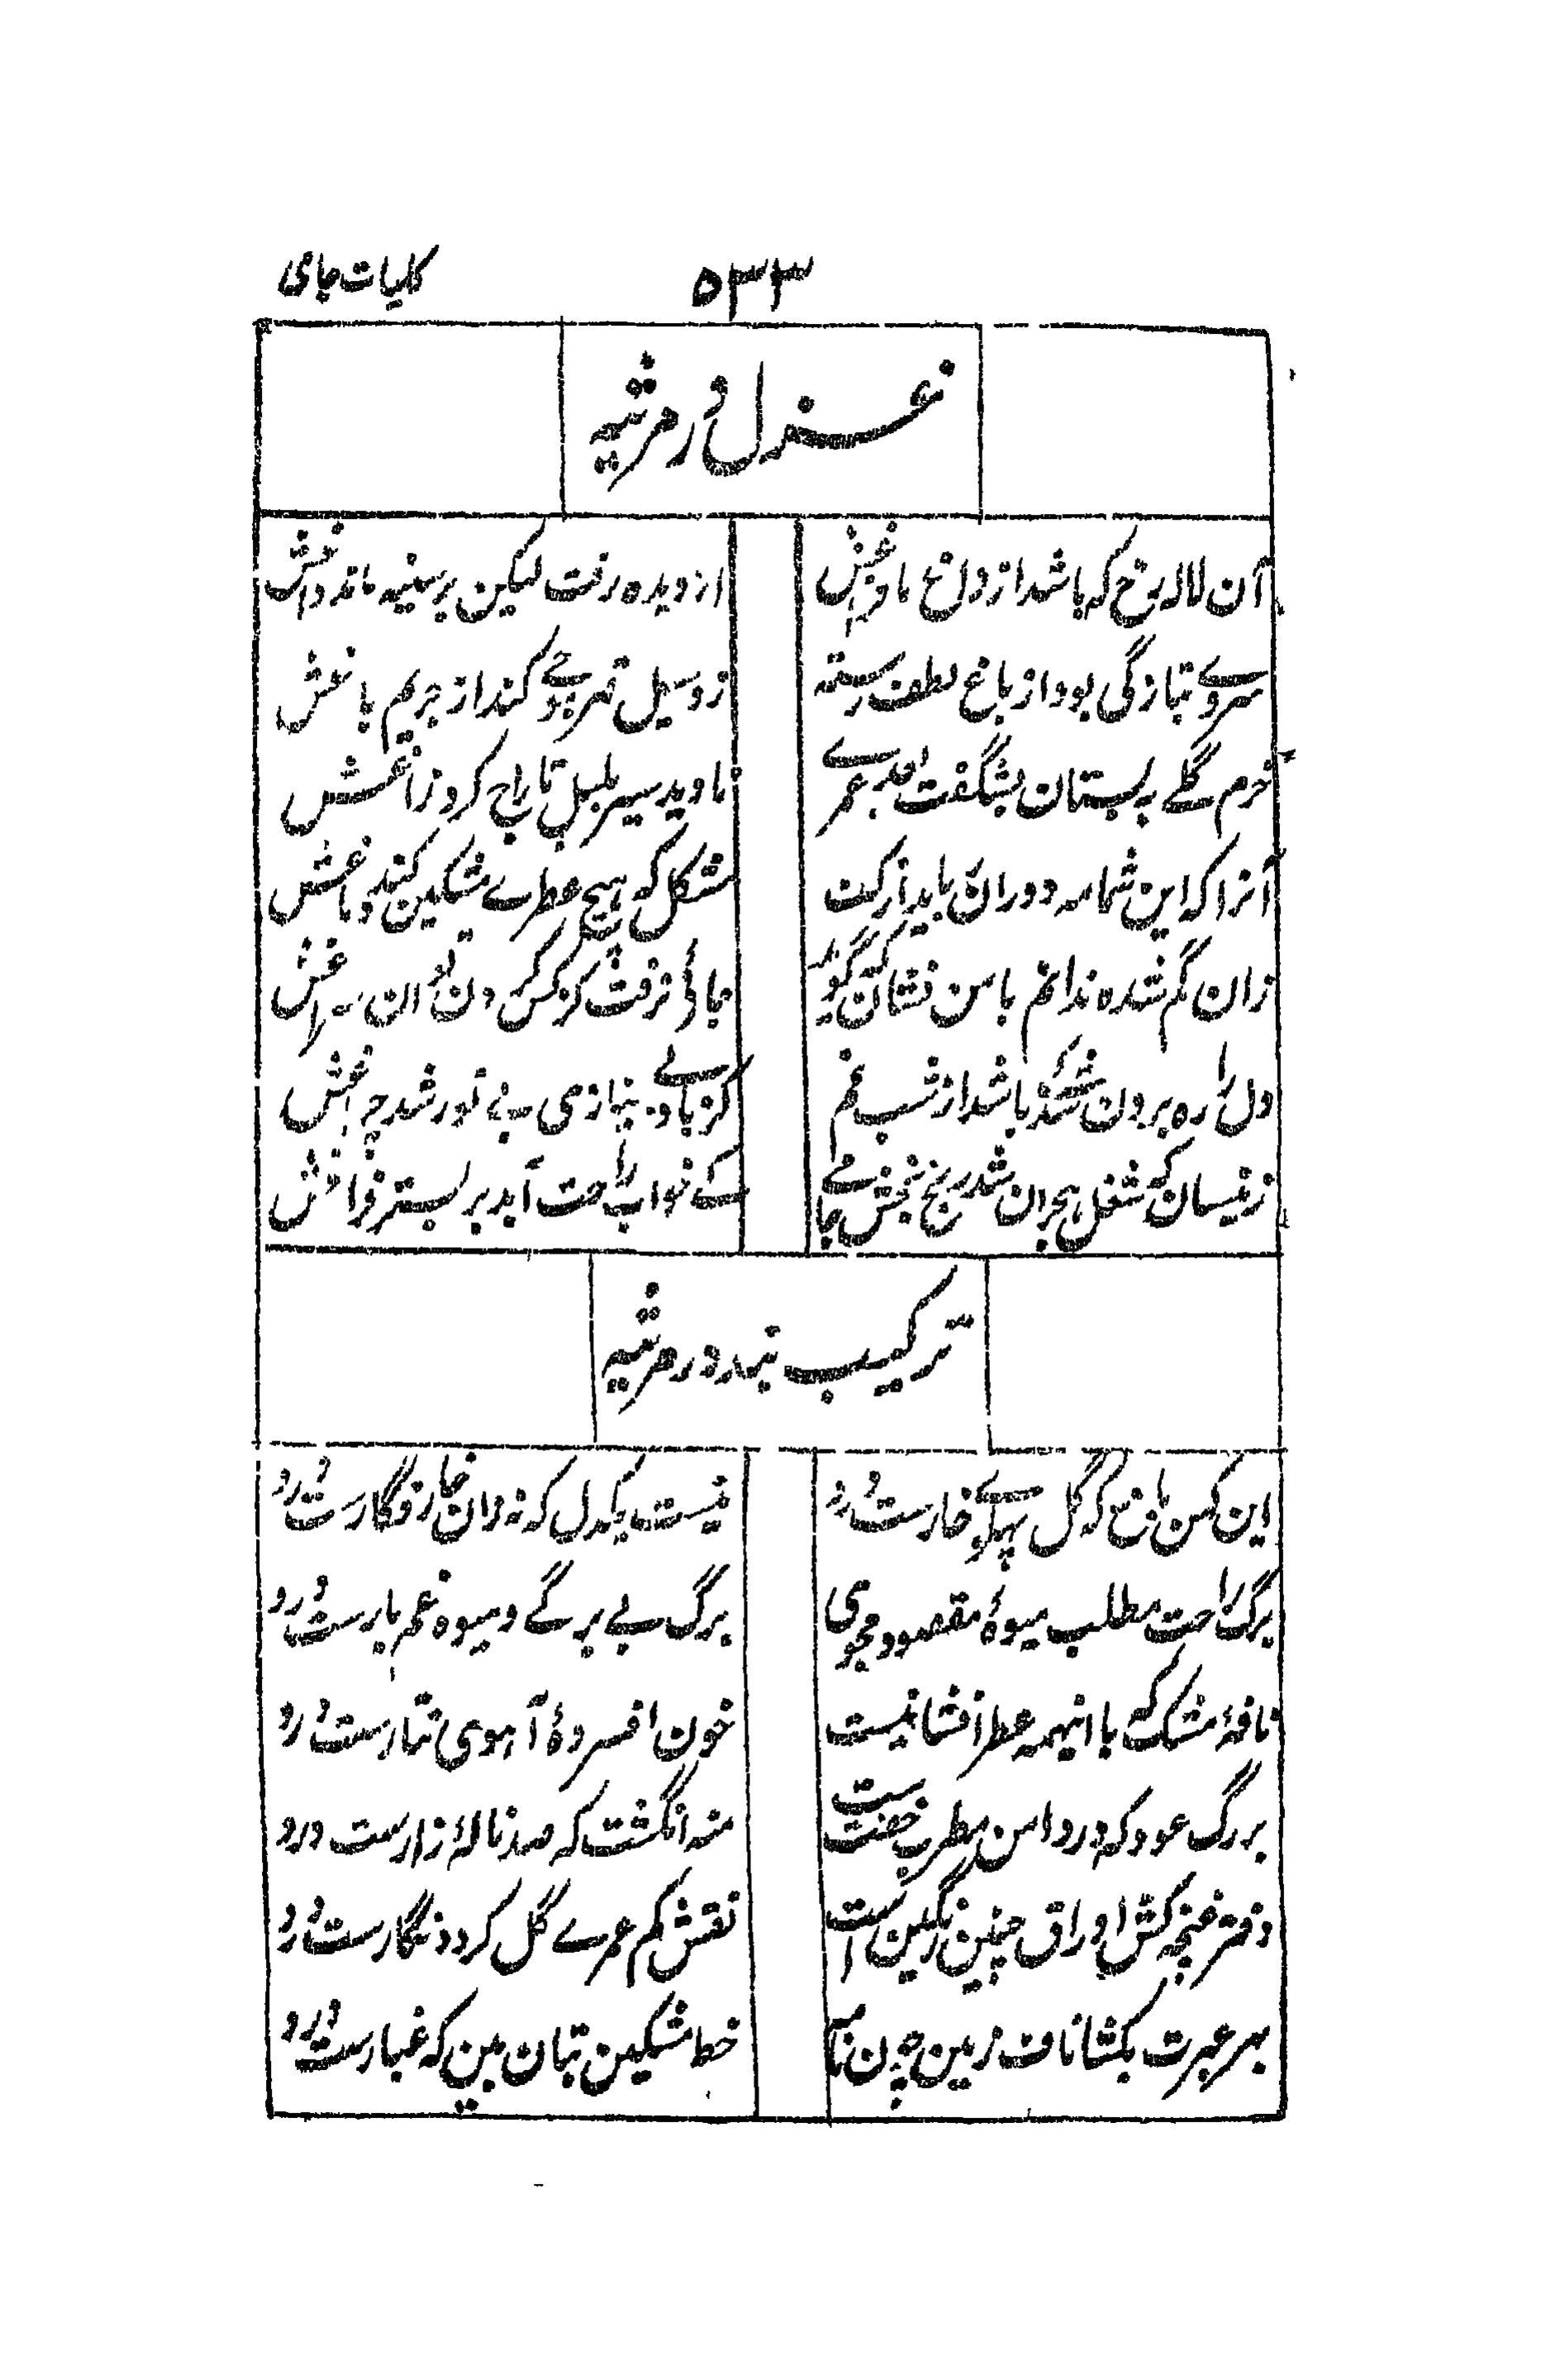 کلیات جامی
۵۳۳
غزل در مرثیه
آن لاله رخ که باشد از داغ ما فراغش
از دیده رفت لیکن بر سینه ماند داغش
سروے بتازگی بود از باغ لطف رسته
زد سیل قهر موجے کند از حریم باغش
خرم گلے به بستان بشگفت بعد عمرے
نا دید سیر بلبل تاراج کرد زاغش
آنرا که این شمامه دوران باید از کف
مشکل که هیچ عطرے مشکین کند دماغش
زان گم شده ندانم با من نشان که گوید
جائے نرفت کز کس نتوان
دل را ره برون شد کے باشد از شب غم
کز باد بے نیازی بی نور شد چراغش
زینسان که شغل هجران شد رنج بخش جامے
کے خواب راحت آید بر بستر فراغش
ترکیب بند در مرثیه
این کهن باغ که گل پهلوے خارست درو
نیست یکدل که نه زان خار فگارست درو
برگ راحت مطلب میوهٔ مقصود مجوی
برگ بے برگے و میوه غم بارست درو
نافهٔ مشک که با اینهمه عطر افشانیست
خون افسردهٔ آهوی تتارست درو
بر رگ عود که در دامن مطرب خفت ست
منه انگشت که صد نالهٔ زارست درو
دفتر غنچه کش اوراق چنین رنگین است
نقش کم عمرے گل کرده نگارست درو
بهر عبرت بکشا ناف زمین چون نافه
خط مشکین بتان بین که غبارست درو